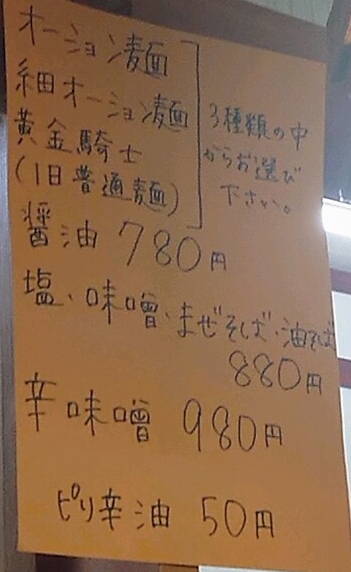 オーション麺
細オーション麺
黄金騎士
(旧普通麺)
3種類の中
からお選び
下さい。
醤油 780円
塩・味噌・まぜそば・油そば
880円
辛味噌 980円
ピリ辛油 50円